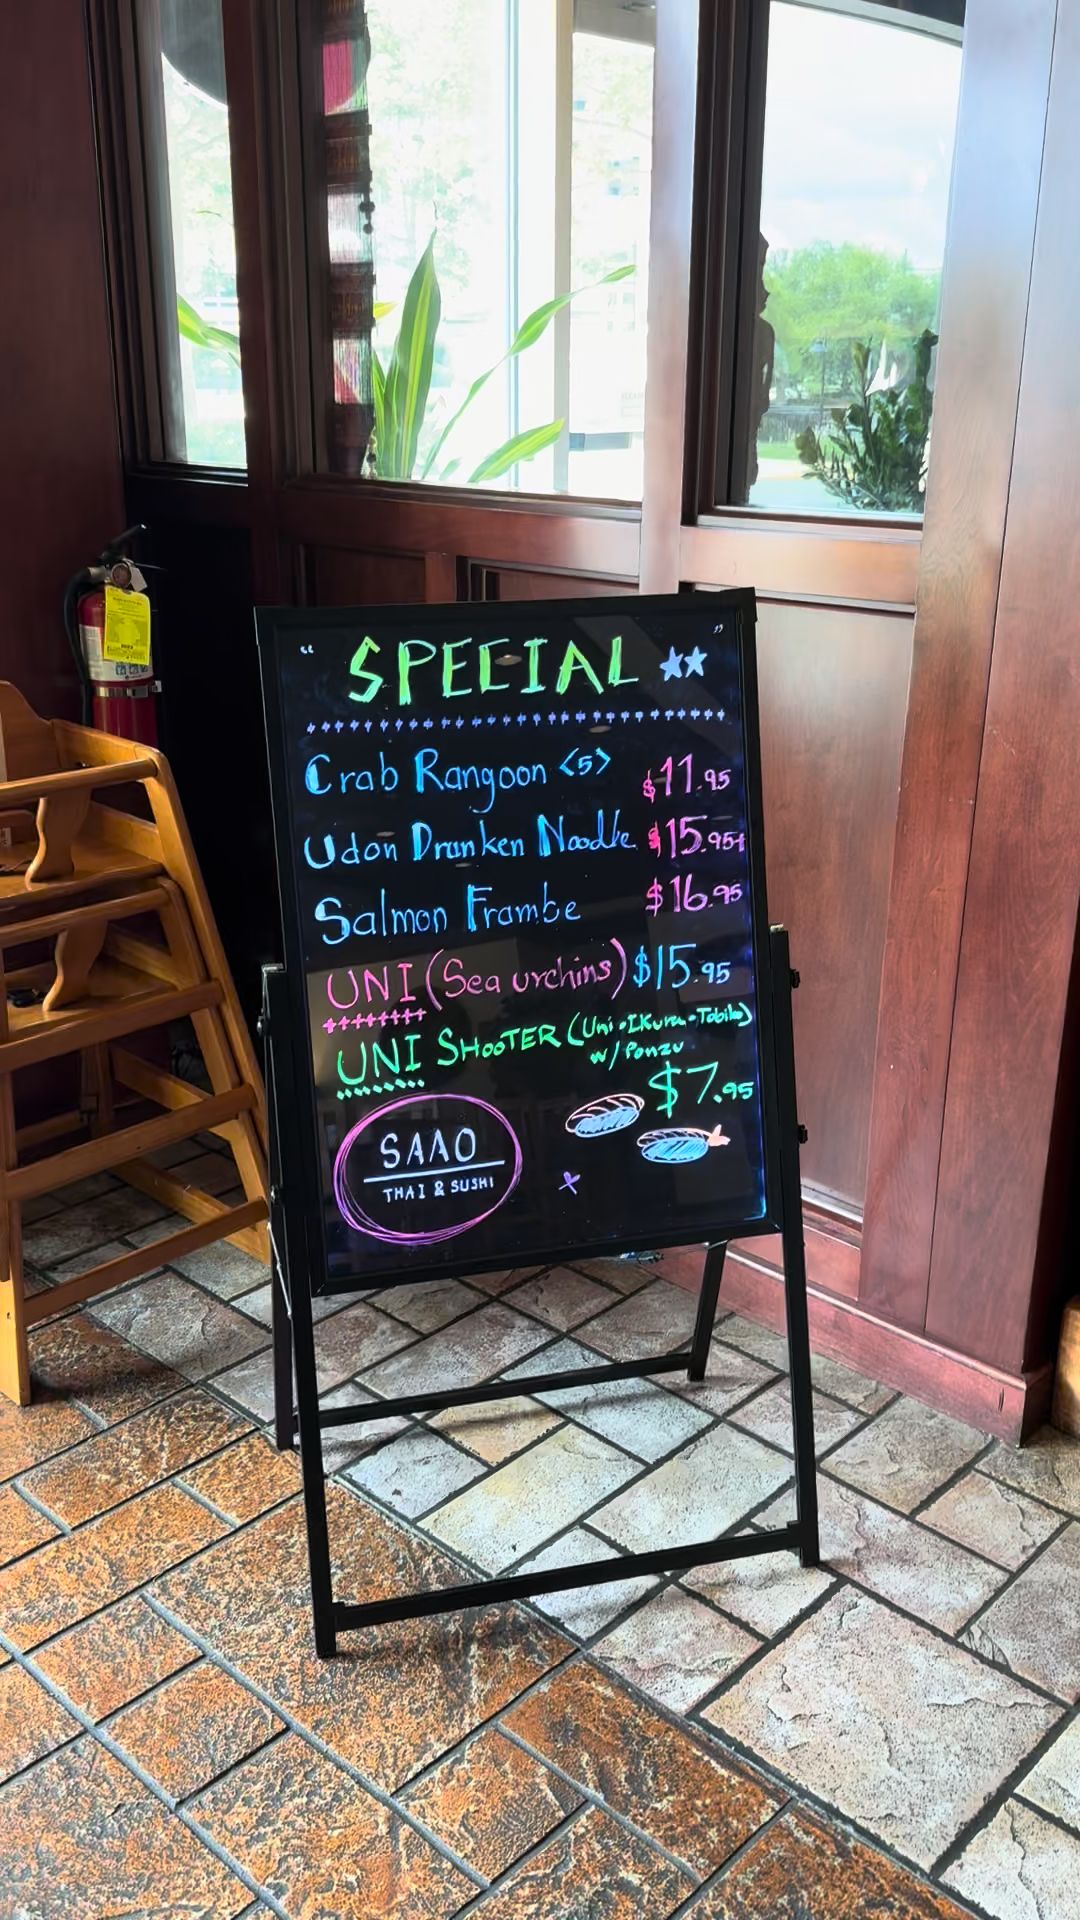 “ SPECIAL ★★ ”
Crab Rangoon <5> $11.95
Udon Drunken Noodle $15.95+
Salmon Frambe $16.95
UNI (Sea urchins) $15.95
UNI SHOOTER (Uni-IKura-Tobiko)
w/ Ponzu
$7.95
SAAO
THAI & SUSHI